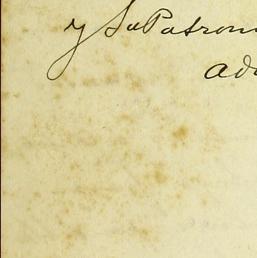 y Su Patron
ad